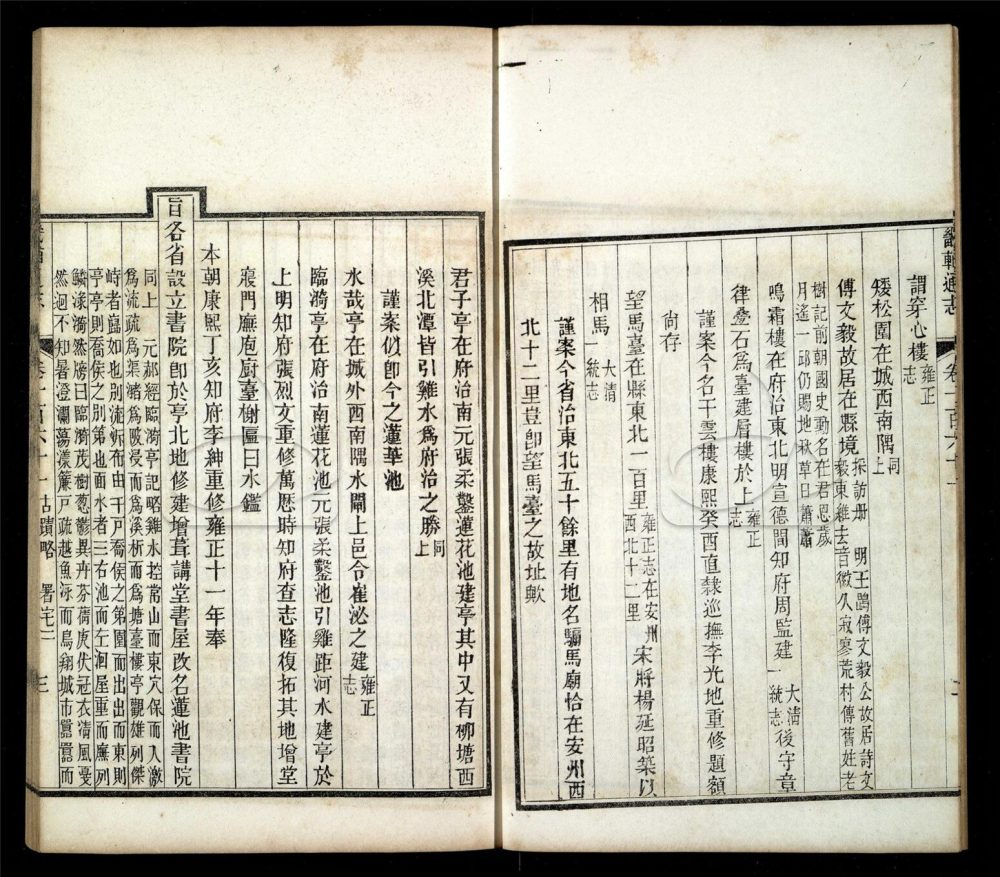 畿輔通志
卷一百六十一
謂穿心樓雍正志
矮松園在城西南隅同上
傅文毅故居在縣境採訪册 明王鷗傅文毅公故居詩文毅東維去音微久寂寥荒村傳舊姓老
樹記前朝國史動名在君恩歲月遙一邱仍賜地秋草日蕭蕭
鳴霜樓在府治東北明宣德間知府周監建大清一統志後守章
律疊石爲臺建層樓於上雍正志
謹案今名干雲樓康熙癸酉直隸巡撫李光地重修題額
尚存
望馬臺在縣東北一百里雍正志在安州西北十二里宋將楊延昭築以
相馬大清一統志
謹案今省治東北五十餘里有地名騸馬廟恰在安州西
北十二里豈卽望馬臺之故址歟
君子亭在府治南元張柔鑿蓮花池建亭其中又有柳塘西
溪北潭皆引雞水爲府治之勝同上
謹案似卽今之蓮華池
水哉亭在城外西南隅水閘上邑令崔泌之建雍正志
臨漪亭在府治南蓮花池元張柔鑿池引雞距河水建亭於
上明知府張烈文重修萬厯時知府查志隆復拓其地增堂
寢門廡庖廚臺榭匾曰水鑑
本朝康熙丁亥知府李紳重修雍正十一年奉
旨各省設立書院卽於亭北地修建增葺講堂書屋改名蓮池書院
同上 元郝經臨漪亭記略雞水控常山而東穴保而入激爲流疏爲渠瀦爲陂浸而爲溪析而爲塘臺樓亭觀雄列傑
峙者巋如也別流泝布由千戶喬侯之第園而出出而東則亭亭則喬侯之別第也面水者三右池而左洄屋重而廡列
鱗漾漪然牓曰臨漪茂樹葱鬱異卉芬蒨庚伏冠衣清風戞然迥不知暑澄瀾蕩漾簾戸疏越魚泳而鳥翔城市囂囂而
卷一百六十一 古蹟略 署宅二 三